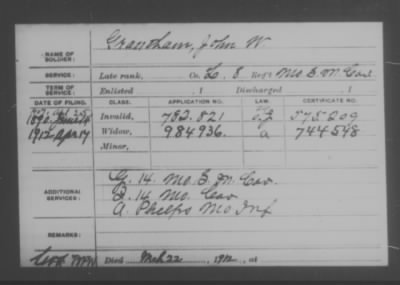 Grantham, John W
NAME OF SOLDIER:
SERVICE: Late rank, Co. L, 8 Reg't Mo. S. M. Cav
TERM OF SERVICE: Enlisted , 1 Discharged , 1
DATE OF FILING. CLASS. APPLICATION NO. LAW. CERTIFICATE NO.
Invalid, 782.821 575209
1912 Apr 17 Widow, 984936. a 744598
Minor,
ADDITIONAL SERVICES:
G. 14. Mo. S. M. Cav.
B. 14 Mo. Cav
A. Phelps Mo Inf
REMARKS:
Died Mch 22, 1912, at